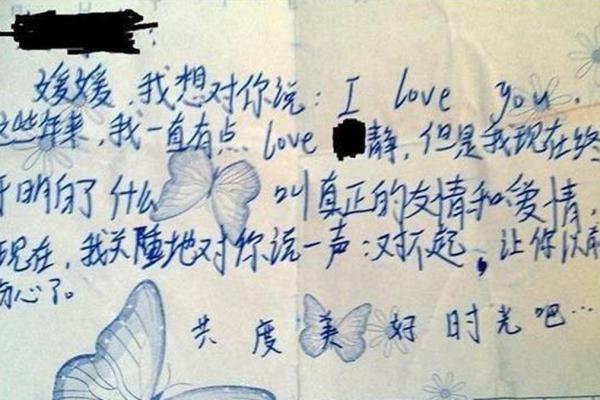 媛媛，我想对你说：I love you.
这些年来，我一直有点 love 静，但是我现在终
于明白了什么 叫真正的友情和爱情，
现在，我关睡地对你说一声：对不起，让你以前
伤心了。
共度美好时光吧…